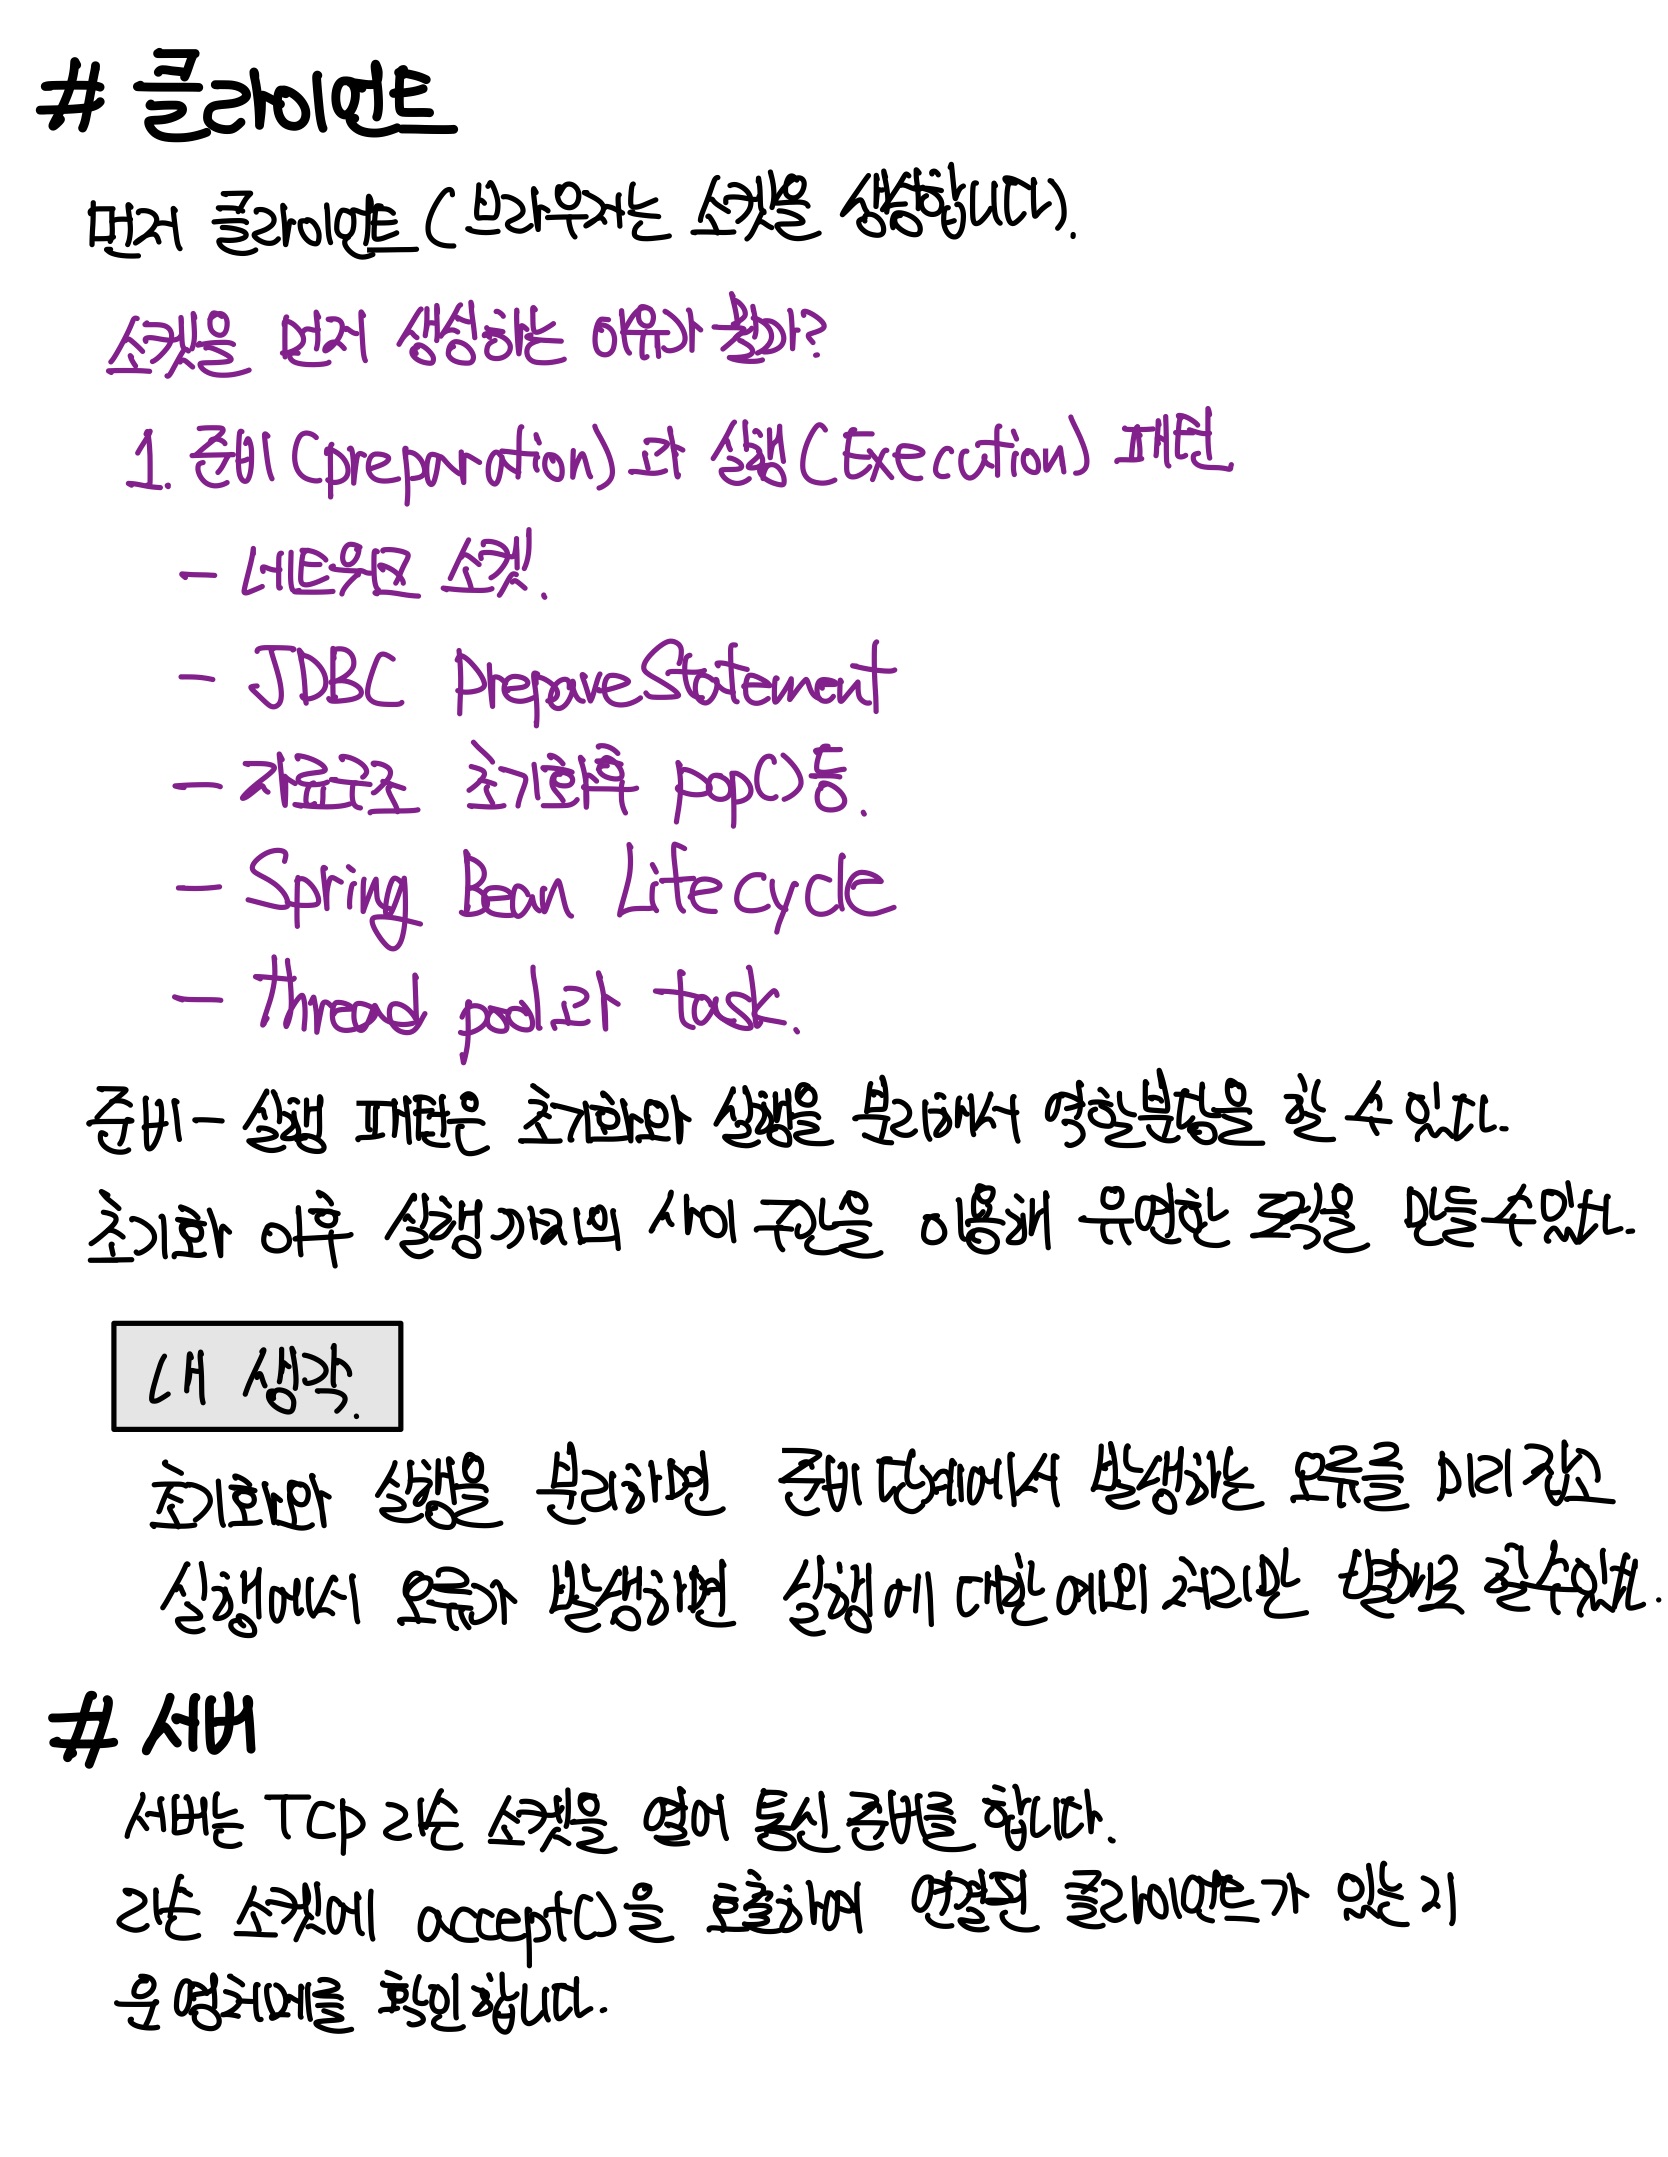 # 클라이언트
먼저 클라이언트 (브라우저는 소켓을 생성합니다).
소켓을 먼저 생성하는 이유가 뭘까?
1. 준비 (preparation) 과 실행 (Execution) 패턴
- 네트워크 소켓.
- JDBC prepareStatement
- 자료구조 초기화 후 pop() 등.
- Spring Bean Lifecycle
- thread pool과 task.
준비 - 실행 패턴은 초기화와 실행을 분리해서 역할분담을 할 수 있다.
초기화 이후 실행까지의 사이 구간을 이용해 유연한 로직을 만들 수 있다.
내 생각.
초기화와 실행을 분리하면 준비 단계에서 발생하는 오류를 미리 잡고
실행에서 오류가 발생하면 실행에 대한 예외 처리만 할 수 있다.
# 서버
서버는 TCP 리슨 소켓을 열어 통신 준비를 합니다.
리슨 소켓에 accept()을 호출하여 연결된 클라이언트가 있는지
운영체제를 확인합니다.